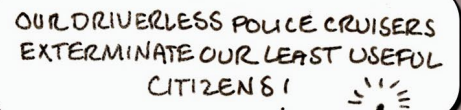 OUR DRIVERLESS POLICE CRUISERS
EXTERMINATE OUR LEAST USEFUL
CITIZENS!